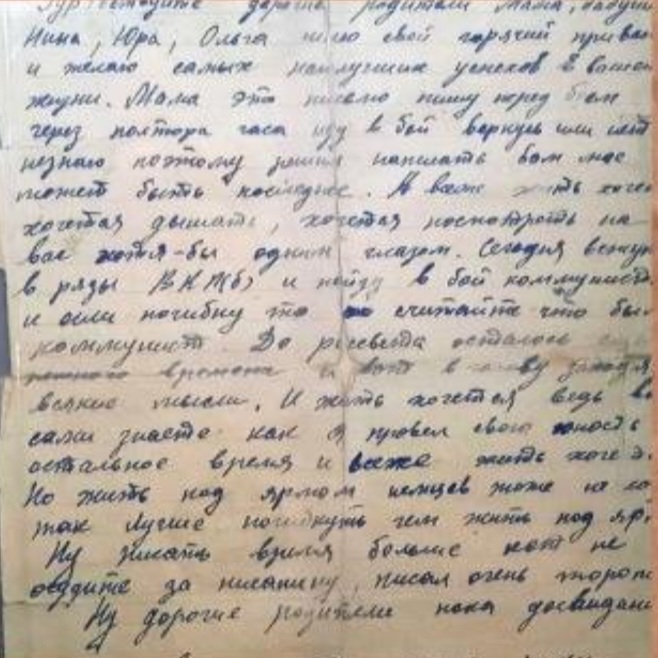 дорогие родители Мама,
Нина, Юра, Ольга шлю свой горячий привет
и желаю самых наилучших успехов в вашей
жизни. Мама это письмо пишу перед боем
через полтора часа иду в бой вернусь или нет
незнаю поэтому решил написать вам мое
может быть последнее. А все же жить хочет
хочется дышать, хочется посмотреть на
вас хотя-бы одним глазом. Сегодня вступ
в ряды ВКП(б) и пойду в бой коммунистом
и если погибну то считайте что был
коммунист. До рассвета осталось
времени и вот в голову заходят
всякие мысли. И жить хочется ведь вы
сами знаете как я провел свою юность
остальное время и всеже жить хочет
Но жить под ярмом немцев тоже не хо
так лучше погибнуть чем жить под яр
Ну писать время больше нет не
осудите за писанину, писал очень тороп
Ну дорогие родители пока досвидани